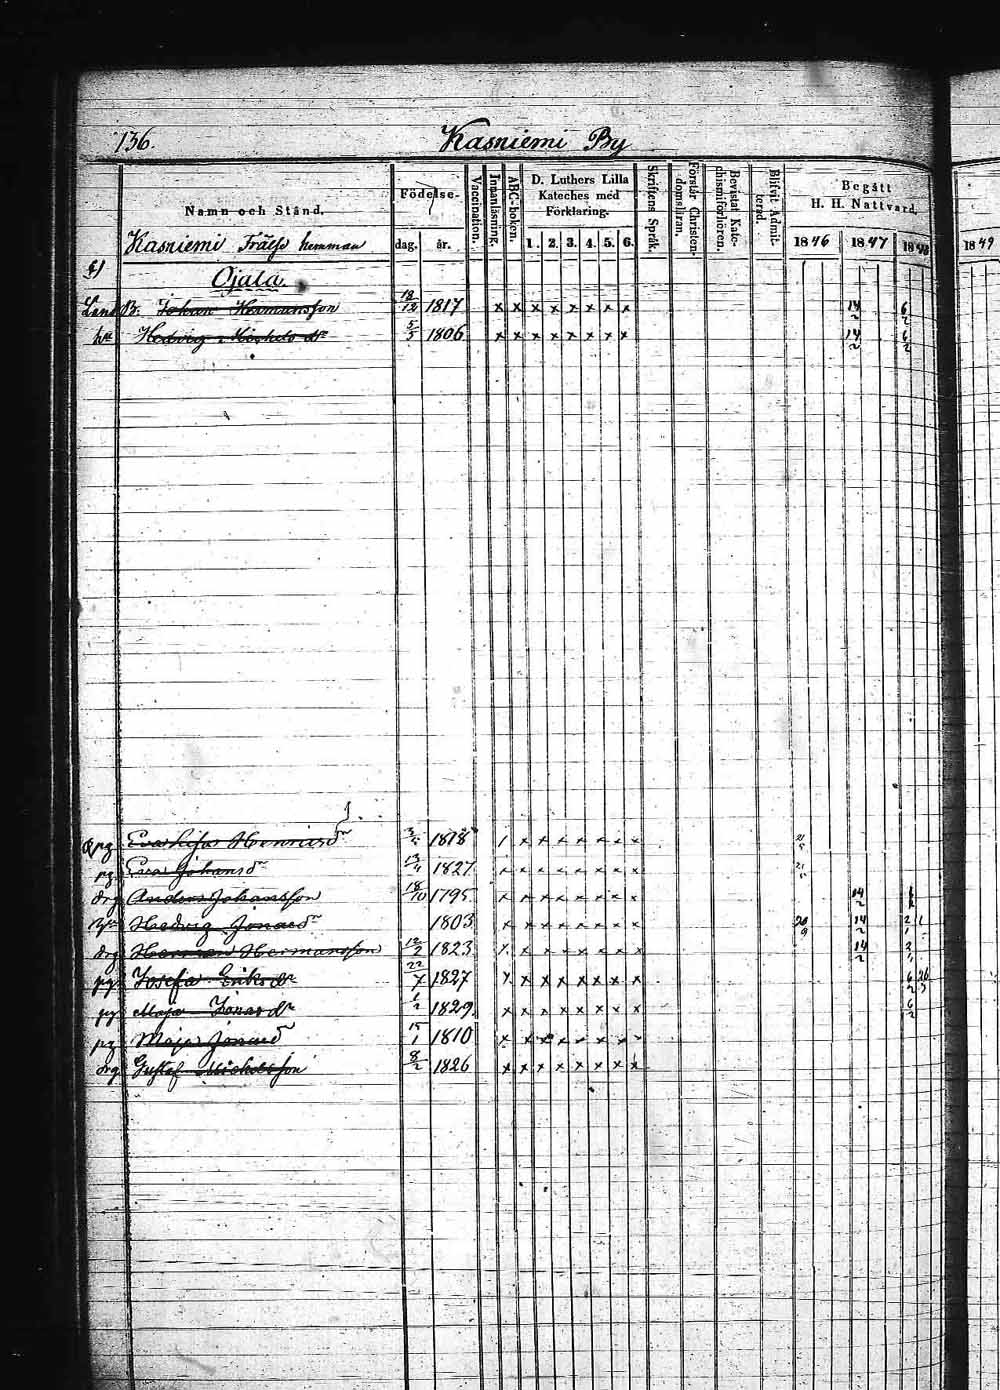 136.
Kasniemi By
Namn och Stånd.
Födelse-
dag.
år.
Vaccination.
Innanläsning.
ABC-boken.
D. Luthers Lilla
Kateches med
Förklaring.
1. 2. 3. 4. 5. 6.
Skriftens Språk.
Förstår Christen-
domsläran.
Bevistat Kate-
chismiförhören.
Blifvit Admit-
terad.
Begått
H. H. Nattvard.
1846 1847 1848 1849
Kasniemi Frälse hemman
Ojala.
Land B. Johan Hermansson 18/12 1817 x x x x x x x x 14/2 6/2
hu Hedvig 5/5 1806 x x x x x x x x 14/2 6/2
Eva Lisa Henricsdr 3/5 1818 1 x x x x x x x 21/5
pg Eva Johansdr 13/4 1827 x x x x x x x x 21/5
drg Anders Johansson 18/10 1795 x x x x x x x x 14/2
Hedvig Jonasdr 1803 x x x x x x x x 20/9 14/2
drg Herman Hermansson 12/2 1823 x x x x x x x x 14/2
pg Josefa Eriksdr 22/7 1827 x x x x x x x x
pg Maja Jonasdr 1/2 1829 x x x x x x x x 6/2
pg Maja Jonasd 15/1 1810 x x x x x x x
drg Gustaf Michelsson 8/2 1826 x x x x x x x x